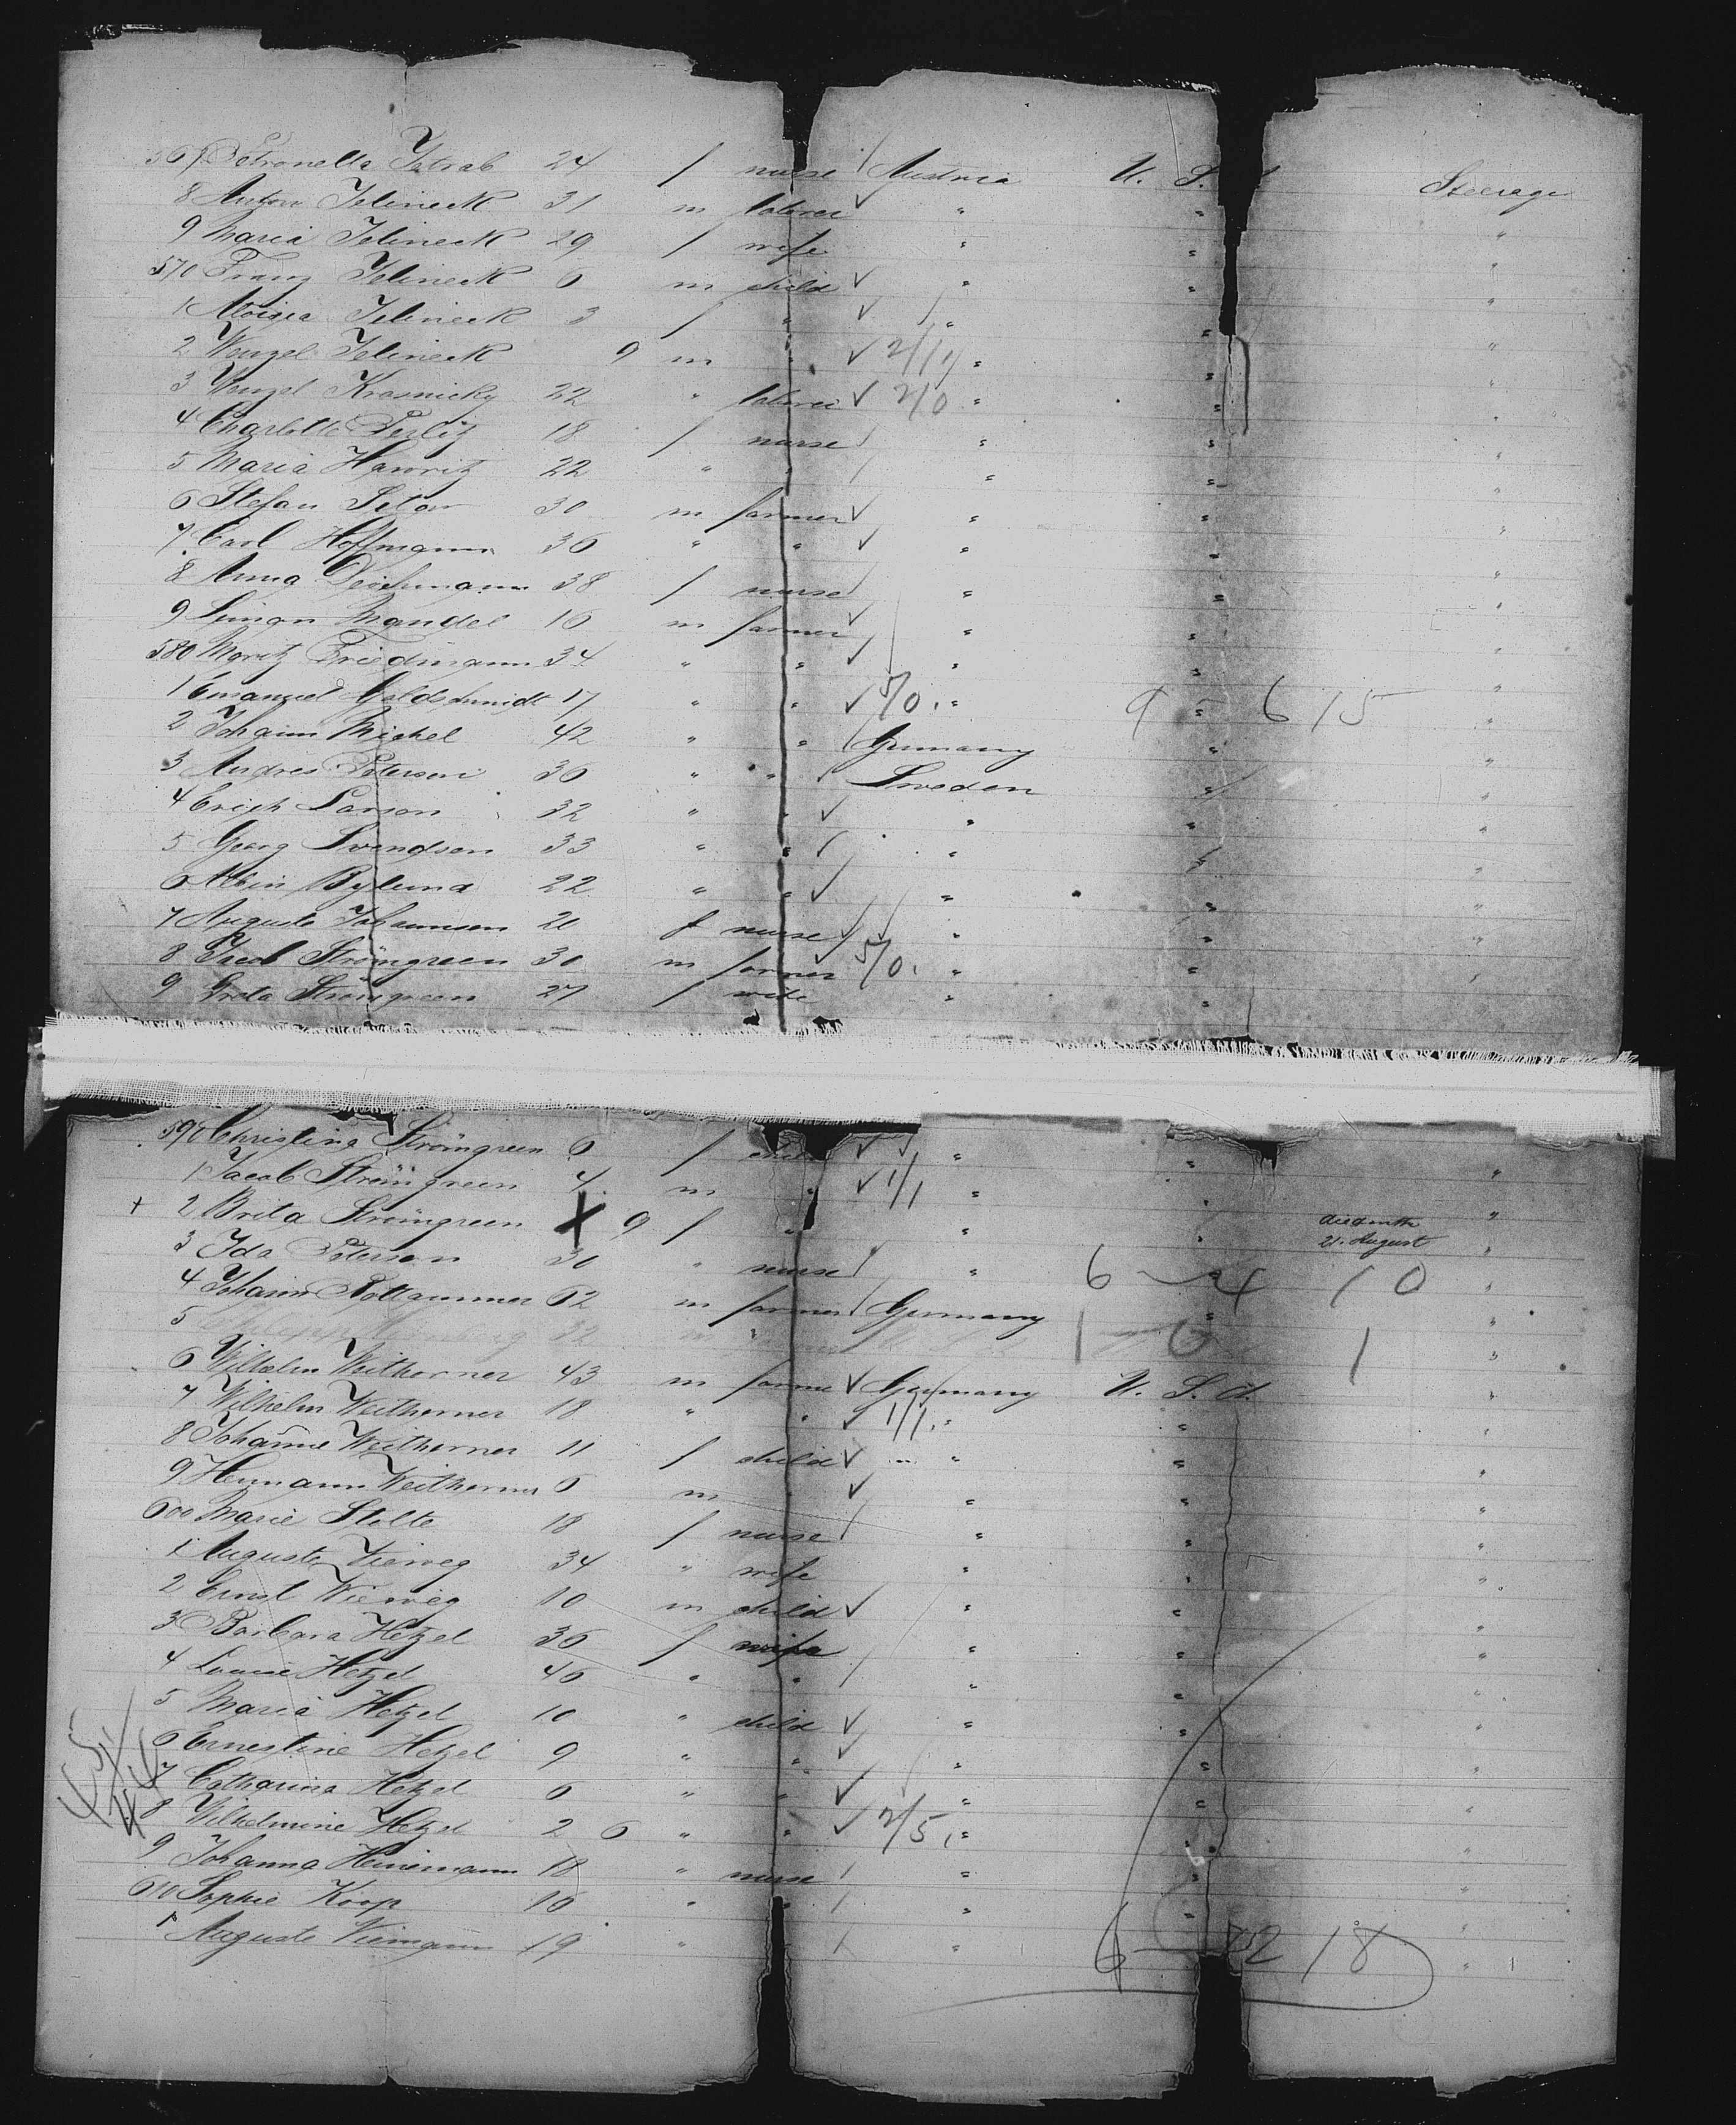 567 Petronella Strab 24 f nurse / Austria U. S. Steerage
8 Anton Jelineck 31 m laborer ✓ " " "
9 Maria Jelineck 29 f wife " " "
570 Franz Jelineck 6 m child ✓ " " "
1 Aloisia Jelineck 3 f " ✓ " " "
2 Wenzel Jelineck 9 m " ✓ 2/1 " " "
3 Wenzel Krasnicky 22 " laborer ✓ 2/0 " " "
4 Charlotte Perlitz 18 f nurse / " " "
5 Maria 22 " " / " " "
6 Stefan 30 m farmer ✓ " " "
7 Carl Hoffmann 36 " " ✓ " " "
8 Anna 38 f nurse / " " "
9 Simon Mandel 16 m farmer ✓ " " "
580 Moritz Friedmann 34 " " ✓ " " "
1 Emanuel Goldschmidt 17 " " ✓ 5/0 " 9 - 6 15 "
2 Johann Michel 42 " " / Germany " "
3 Andres Peterson 36 " " Sweden " "
4 Erich Larson 32 " " ✓ " " "
5 Georg Svendson 33 " " ✓ " " "
6 Albin Bylund 22 " " ✓ " " "
7 Auguste Johannsen 20 f nurse / " " "
8 Jacob Strömgreen 30 m farmer ✓ 5/0 " " "
9 Greta Strömgreen 27 f wife " "
590 Christina Strömgreen 6 f child ✓ " " "
1 Jacob Strömgreen 4 m " ✓ 1/1 " " "
+ 2 Brita Strömgreen X 9 f " " " died on the 21. August "
3 Ida Peterson 30 " nurse / " 6 - 4 10 "
4 Johann 62 m farmer / Germany " "
5 32 m " 1 - 0 1 "
6 Wilhelm Weitherner 43 m farmer ✓ Germany U. S. A. "
7 Wilhelm Weitherner 18 " " ✓ 1/1 " " "
8 Johanne Weitherner 11 f child ✓ " " "
9 Hermann Weitherner 6 m " ✓ " " "
600 Marie Stolte 18 f nurse / " " "
1 Auguste Vieweg 34 " wife " " "
2 Ernst Vieweg 10 m child ✓ " " "
3 Barbara Hetzel 36 f wife " " "
4 Louise Hetzel 46 " " / " " "
5 Maria Hetzel 10 " child ✓ " " "
6 Ernestine Hetzel 9 " " ✓ " " "
7 Catharina Hetzel 6 " " ✓ " " "
8 Wilhelmine Hetzel 2 6 " " ✓ 2/5 " " "
9 Johanna Heinemann 18 " nurse / " " "
610 Sophie Koop 16 " " / " " "
1 Auguste Viemann 19 " " / " 6 12 18 "